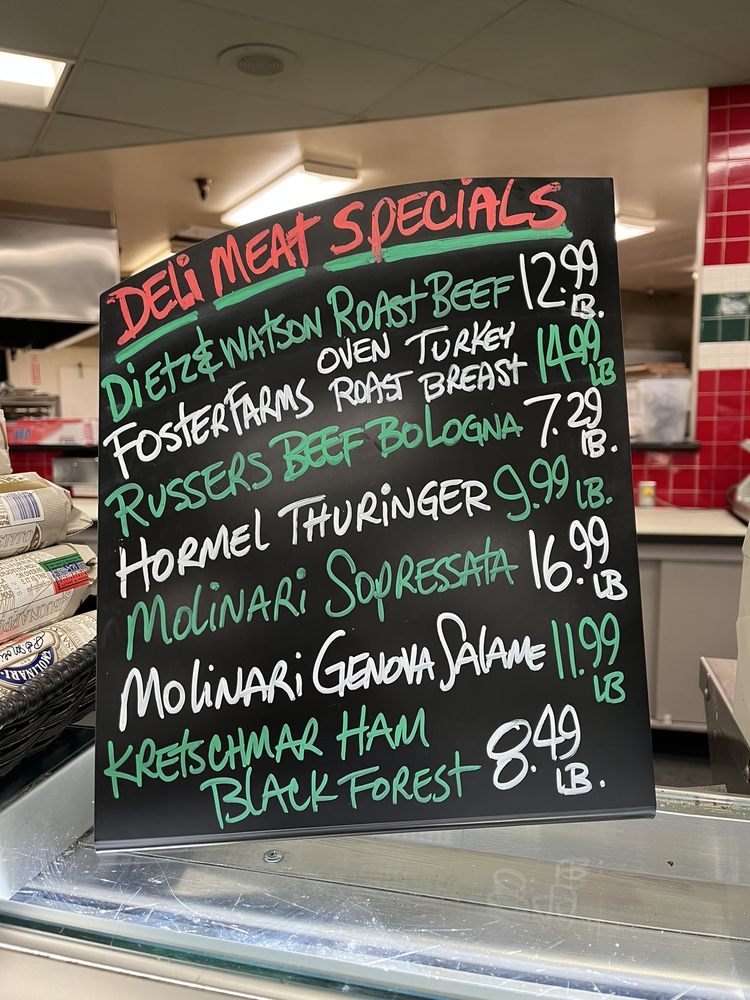 DELI MEAT SPECIALS
DIETZ & WATSON ROAST BEEF 12.99 LB.
FOSTER FARMS OVEN ROAST TURKEY BREAST 14.99 LB
RUSSERS BEEF BOLOGNA 7.29 LB.
HORMEL THURINGER 9.99 LB.
MOLINARI SOPRESSATA 16.99 LB
MOLINARI GENOVA SALAME 11.99 LB
KRETSCHMAR HAM
BLACK FOREST 8.49 LB.
MOLINARI